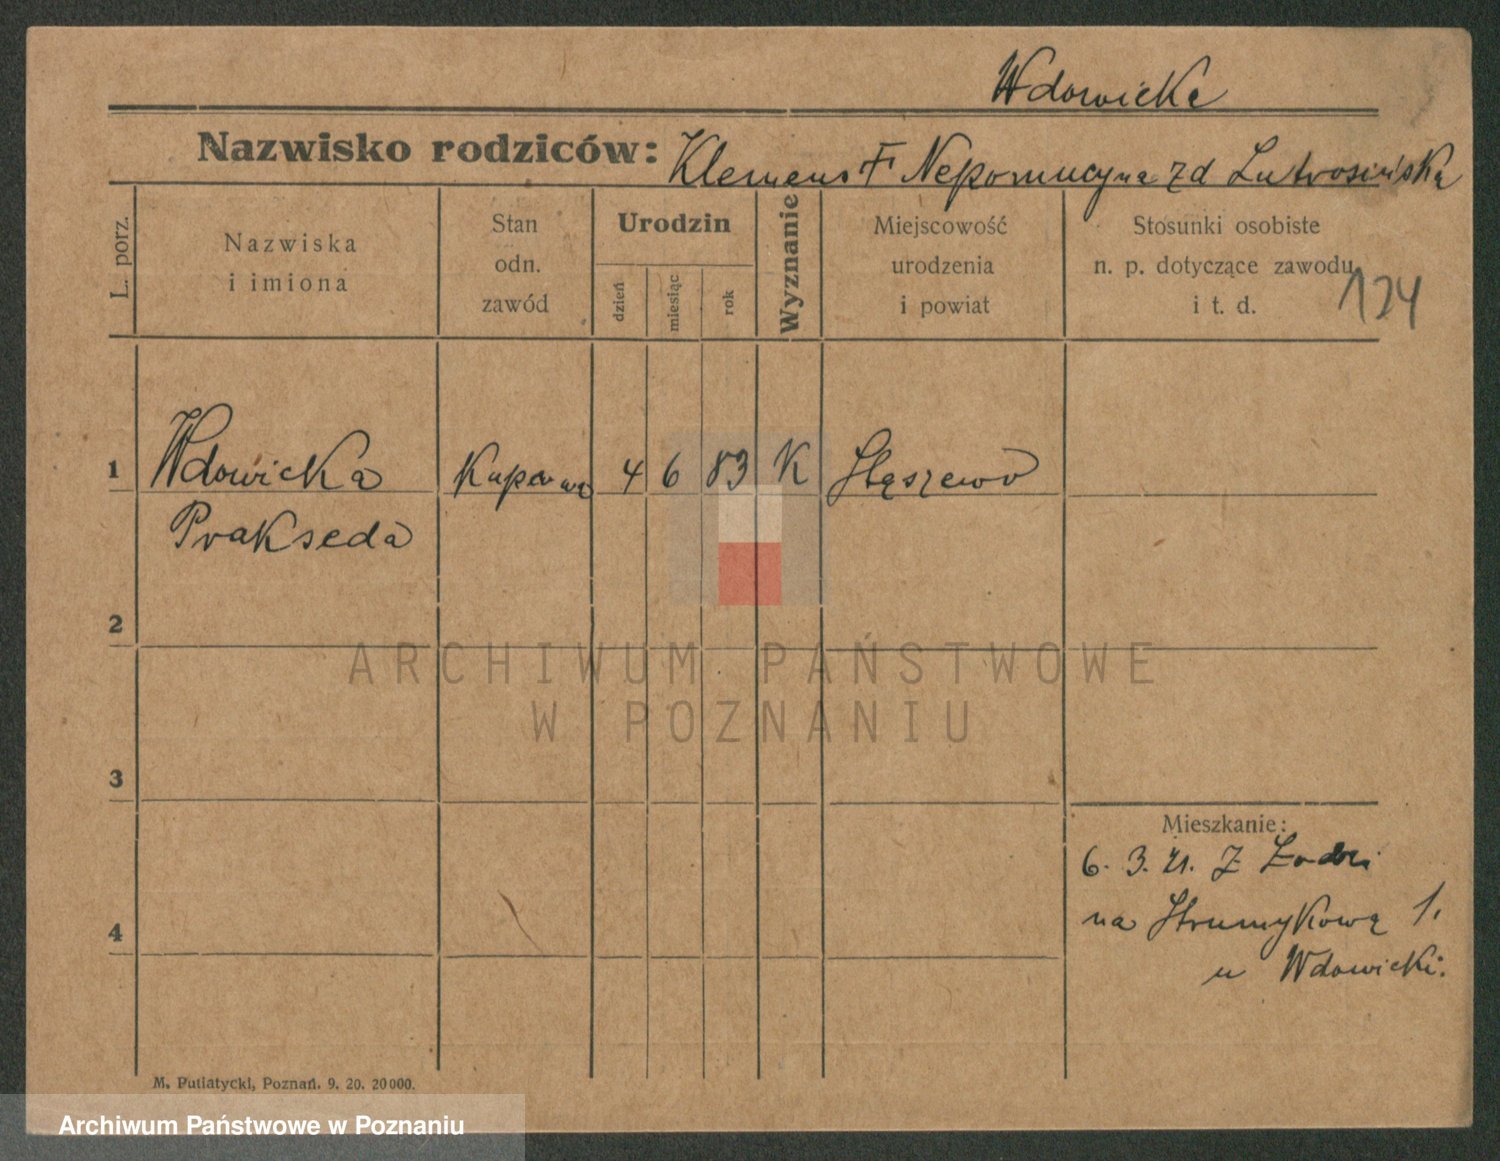 Wdowicka
Nazwisko rodziców: Klemens F Nepomucyna zd Lutrosińska
L. porz.
Nazwiska
i imiona
Stan
odn.
zawód
Urodzin
dzień
miesiąc
rok
Wyznanie
Miejscowość
urodzenia
i powiat
Stosunki osobiste
n. p. dotyczące zawodu
i t. d.
124
1 Wdowicka 4 6 83 K Stęszewo
Prakseda
2
ARCHIWUM PAŃSTWOWE
W POZNANIU
3
Mieszkanie:
6. 3. 21. Z Łodzi
na Strumykową 1.
4
u Wdowicki.
M. Putiatycki, Poznań. 9. 20. 20000.
Archiwum Państwowe w Poznaniu